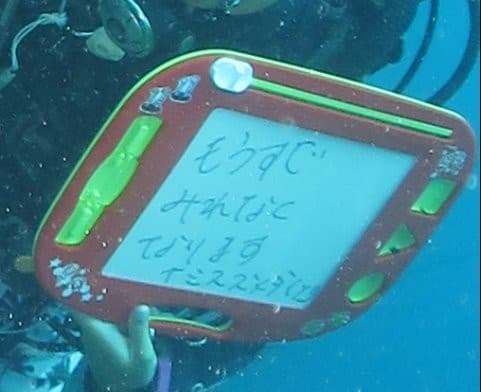 もうすぐ
みれなく
なります
ナミスズメダイ